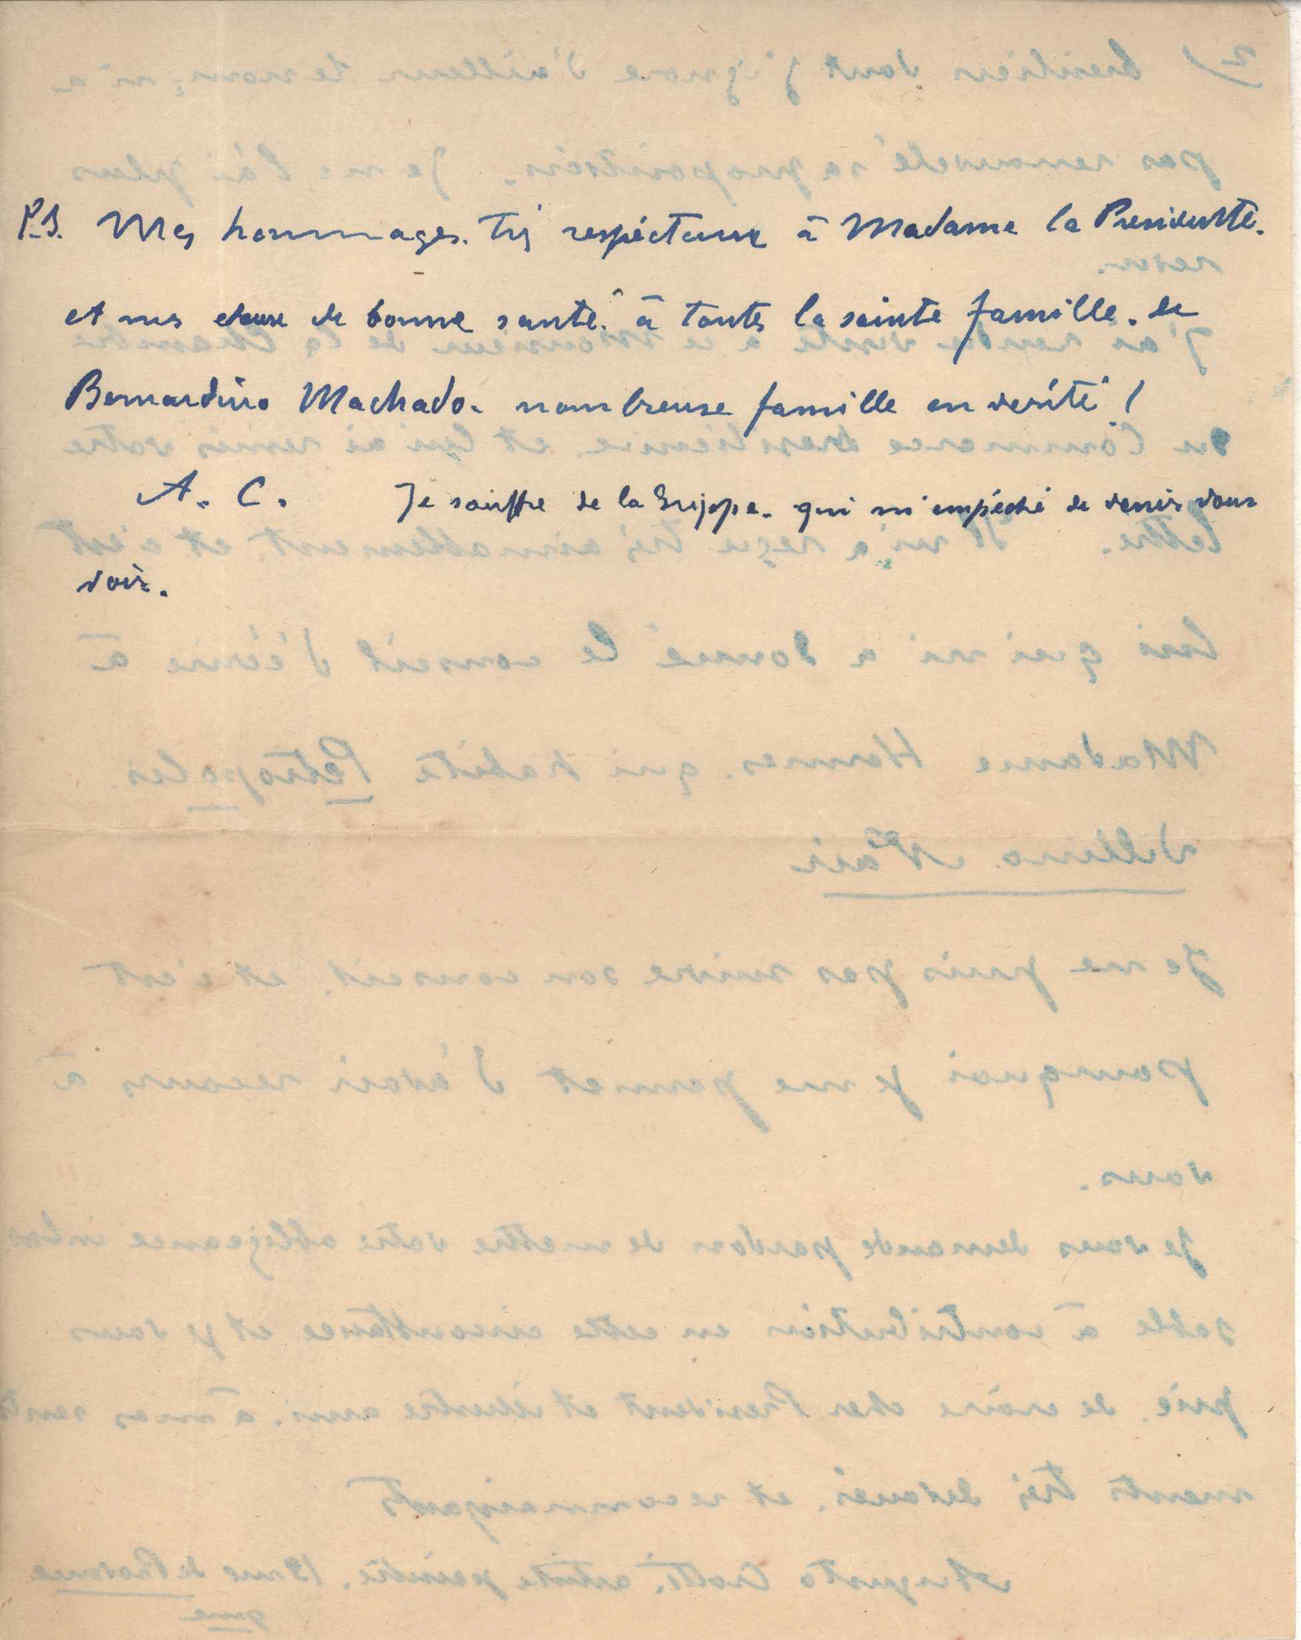 P.S. Mes hommages. très respéctueux à Madame la Presidente.
et mes voeux de bonne santé. à toute la sainte famille. de
Bernardino Machado. nombreuse famille en verité!
A. C. Je souffre de la Grippe. qui m'empéche de venir vous
voir.
2) bresilien dont j'ignore d'ailleurs le nom, m'a
pas renouvelé sa proposition. Je ne l'ai plus
revu.
J'ai rendu visite à ce Monsieur de la Chambre
du Commerce bresilienne et lui ai remis votre
lettre. Il m'a reçu très aimablement, et c'est
lui qui m'a donné le conseil d'écrire à
Madame Hermes. qui habite Petropolis.
Je ne puis pas suivre son conseil. et c'est
pourquoi je me permet d'avoir recours à
vous.
Je vous demande pardon de mettre votre obligeance
à contribution en cette circonstance et je vous
prie. de croire cher President et illustre ami. à mes
ments très devoués. et reconnaissants
Augusto artiste peintre.